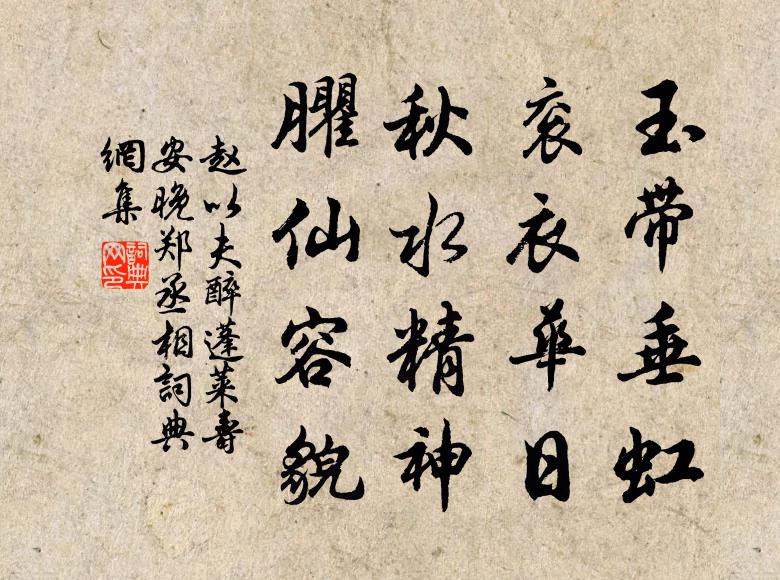 玉带垂虹
衮衣华日
秋水精神
臞仙容貌
赵以夫醉蓬莱寿
安晚郑丞相詞典
網集
詞典
网印